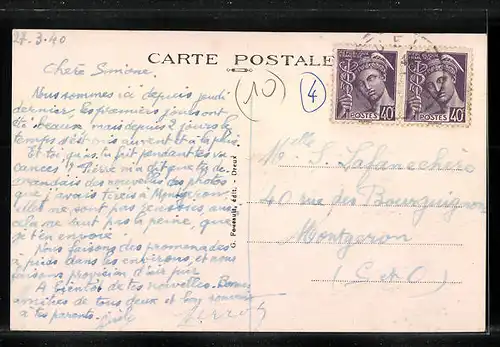 27.3.40
CARTE POSTALE
Chère Simone.
(10)
(4)
Nous sommes ici depuis jeudi
dernier, les premiers jours ont
été beaux, mais depuis 2 jours le
temps d'est mis au vent et à la pluie
Et toi, qu'as tu fait pendant les va
cances ? Pierre m'a dit que tu de-
mandais des nouvelles des photos
que j'avais à
elles ne sont pas
cela ne vaut pas la peine, que
je t'en envoie.
Nous faisons des promenades
à pieds dans les environs, et nous
faisons provision d'air pur
A bientôt de tes nouvelles. Bonnes
amitiés de tous deux et bon souvenir
à tes parents.
G. Foucault, édit. - Dreux
POSTES 40
POSTES 40
Melle S. Lafanechère
40 rue des Bourguignons
Montgeron
(S. et O.)